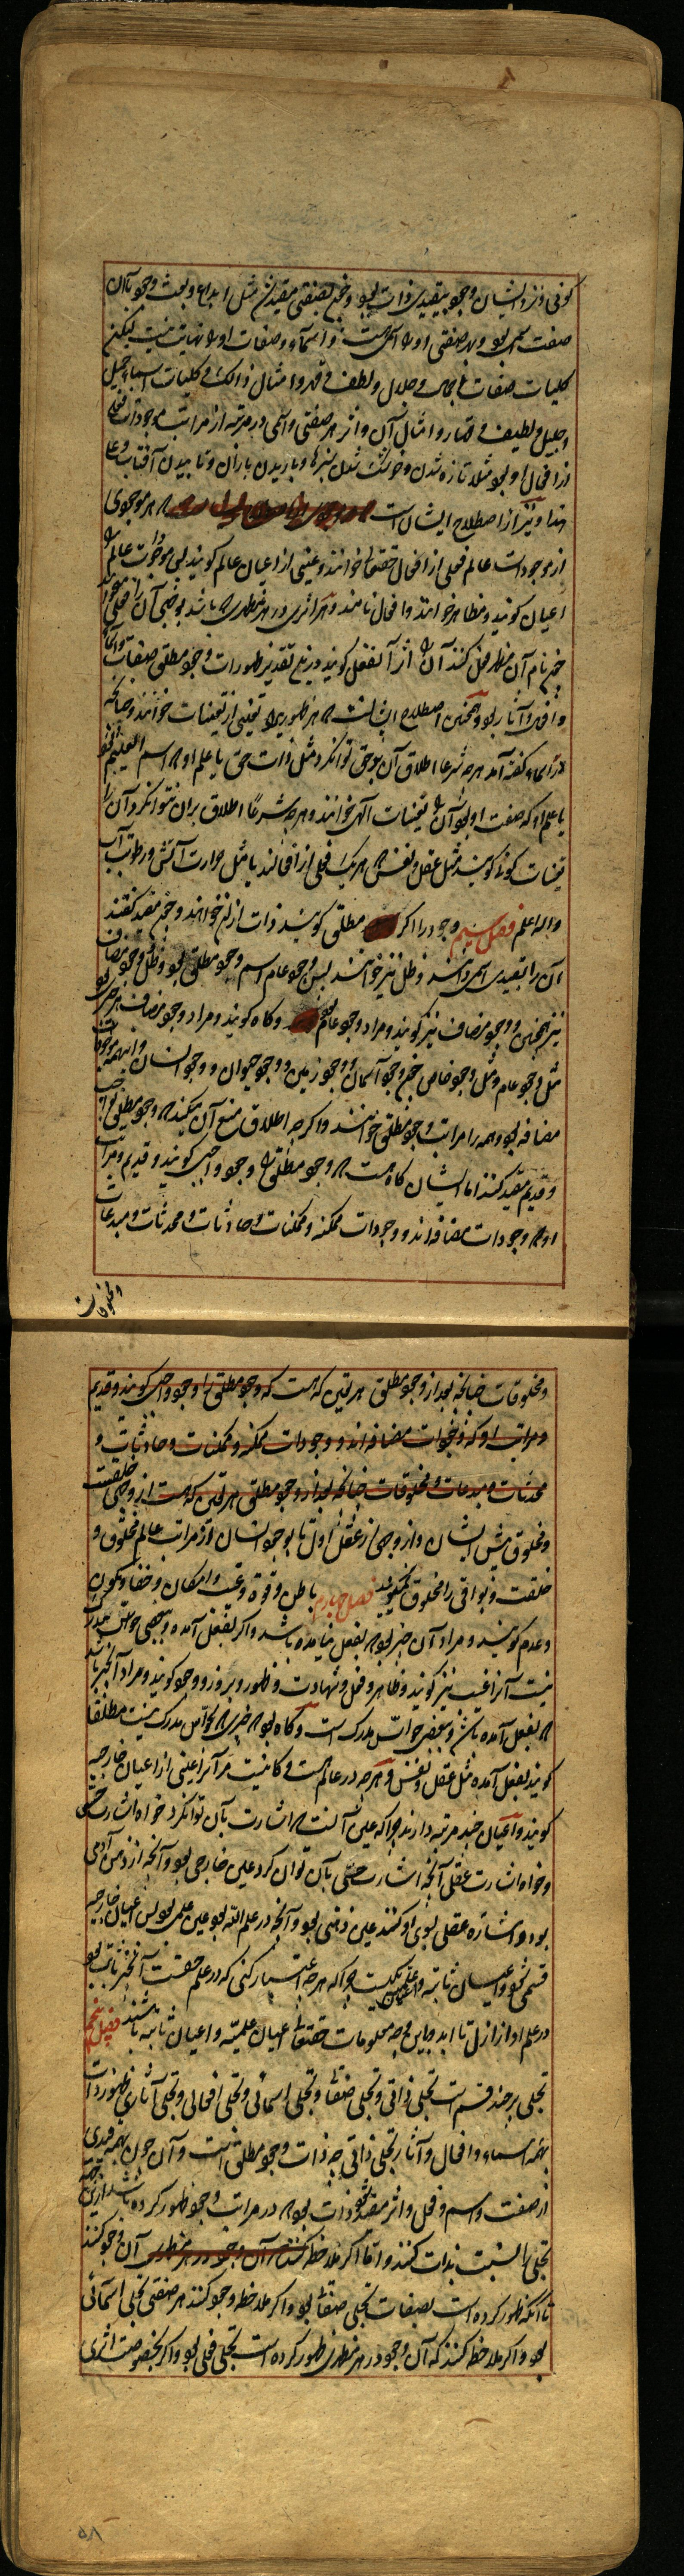 کونی نزد ایشان وجود بقیدی ذات بود و چون بصفتی مقید شد مثل ابداع و بعث وجود با آن
صفت اسمی بود و هر صفتی او را اسمی هست و اسماء و صفات او را نهایت نیست لیکن
کلیات صفات جمال و جلال و لطف و قهر و امثال ذالک و کلیات اسماء جمیل
و جلیل و لطیف و قهار و امثال آن و اثر هر صفتی و اسمی در هر مرتبه از مراتب موجودات فعلی
از افعال او بود مثلا تازه شدن و خشک شدن سبزها و باریدن باران و تابیدن آفتاب و علی
هذا و نیز از اصطلاح ایشان است که هر موجودی
از موجودات عالم فعلی از افعال حق تعالی خوانند و عینی از اعیان عالم کویند پس موجودات عالم را
اعیان کویند و مظاهر خوانند و افعال نامند و هر اثری در هر مظهری که باشد
نام آن مظهر فعل کنند آن اثر را بفعل کویند ظهورات وجود مطلق صفات
و افعال و آثار بود و همچنین اصطلاح ایشان است که هر ظهوری را تعینی از تعینات خوانند و چنانکه
در اسماء گفته آمد هر چه شرعا اطلاق آن بر حق توان کرد مثل ذات حق یا علم او که اسم العلیم
یا علم او که صفت او بود آن را تعینات الهی خوانند و هر چه شرعا اطلاق بران نتوان کرد آن را
تعینات کونی کویند مثل عقل و نفس که هر یک فعلی از افعالند یا مثل حرارت آتش و رطوبت آب
والله اعلم فصل سیم وجود را اگر مطلق کویند ذات ازان خواهند و چون مقید گفتند
آن را بقیدی اسمی دانند و ظل نیز خوانند پس وجود عام اسم وجود مطلق بود و ظل وجود مضاف
نیز همچنین و وجود مضاف نیز کویند و مراد وجود عام و گاه کویند و مراد وجود مضاف هر چیزی بود
مثل وجود عام و مثل وجود خاص چون وجود آسمان و وجود زمین و وجود حیوان و وجود انسان و اینهمه موجودات
مضافه بود و همه را مراتب وجود مطلق خوانند و اگر چه اطلاق منع آن میکند که وجود مطلق را بواجب
و قدیم مقید کنند اما ایشان گاه هست که وجود مطلق را وجود واجب کویند و قدیم و مراتب
او که وجودات مضافه اند و وجودات ممکنه و ممکنات و حادثات و محدثات و مبدعات
و مخلوقات
و مخلوقات چنانکه بعد از وجود مطلق هر تعین که هست که وجود مطلق را وجود واجب کویند و قدیم
و مراتب او که وجودات مضافه اند و وجودات ممکنه و ممکنات و حادثات و
محدثات و مبدعات و مخلوقات چنانکه بعد از وجود مطلق هر تعین که هست از وجهی خلقیت
و مخلوق پیش ایشان و از وجهی از عقل اول تا بوجود انسان از مراتب عالم مخلوق و
خلقت و بواقی را مخلوق نکویند فصل چهارم باطن و قوة و غیب و امکان و خفا و کمون
و عدم کویند و مراد آن چیز بود که بفعل نیامده باشد و اگر بفعل آمده و ببعضی حواس مدرک
نیست آنرا غیب نیز کویند و ظاهر و فعل و شهادت و ظهور و بروز و وجود کویند و مراد آنچیز باشد
که بفعل آمده باشد و ببعضی حواس مدرک است و گاه بود که چیزی که بحواس مدرک نیست مطلقا
کویند بفعل آمده مثل عقل و نفس و هر چه در عالم هست و کاینست مر آنرا عینی از اعیان خارجیه
کویند و اعیان چند مرتبه دارند چرا که عین آنست که اشارت بآن توان کرد خواه اشارت حسی
و خواه اشارت عقلی آنچه اشارت حسی بآن توان کرد عین خارجی بود و آنچه از ذهن آدمی
بود و اشاره عقلی بسوی او کنند عین ذهنی بود و آنچه در علم الله بود عین علمی بود پس اعیان خارجیه
قسمی بود و اعیان ثابته و علمیه یکیست چرا که هر چه اعتبار کنی که در علم حقست آنچیز ثابت بود
در علم او از ازل تا ابد چه معلومات حق تعالی اعیان علمیه و اعیان ثابته باشند فصل پنجم
تجلی بر چند قسم است تجلی ذاتی و تجلی صفاتی و تجلی اسمائی و تجلی افعالی و تجلی آثاری ظهور ذات
بهمه اسماء و افعال و آثار تجلی ذاتی چه ذات وجود مطلق است و آن چون بهمه قیدی
از صفت و اسم و فعل و اثر مقید بود ذات بود که در مراتب وجود ظهور کرده باشد
تجلی را نسبت بذات کنند و اما اگر ملاحظه کنند که آن وجود در هر مظهری آن وجود کنند
تا آنکه ظهور کرده است بصفات تجلی صفاتی بود و اگر ملاحظه وجود کنند هر صفتی تجلی اسمائی
بود و اگر ملاحظه کنند که آن وجود در هر مظهری ظهور کرده است تجلی فعلی بود و اگر بخصوصیت اثری
۵۸